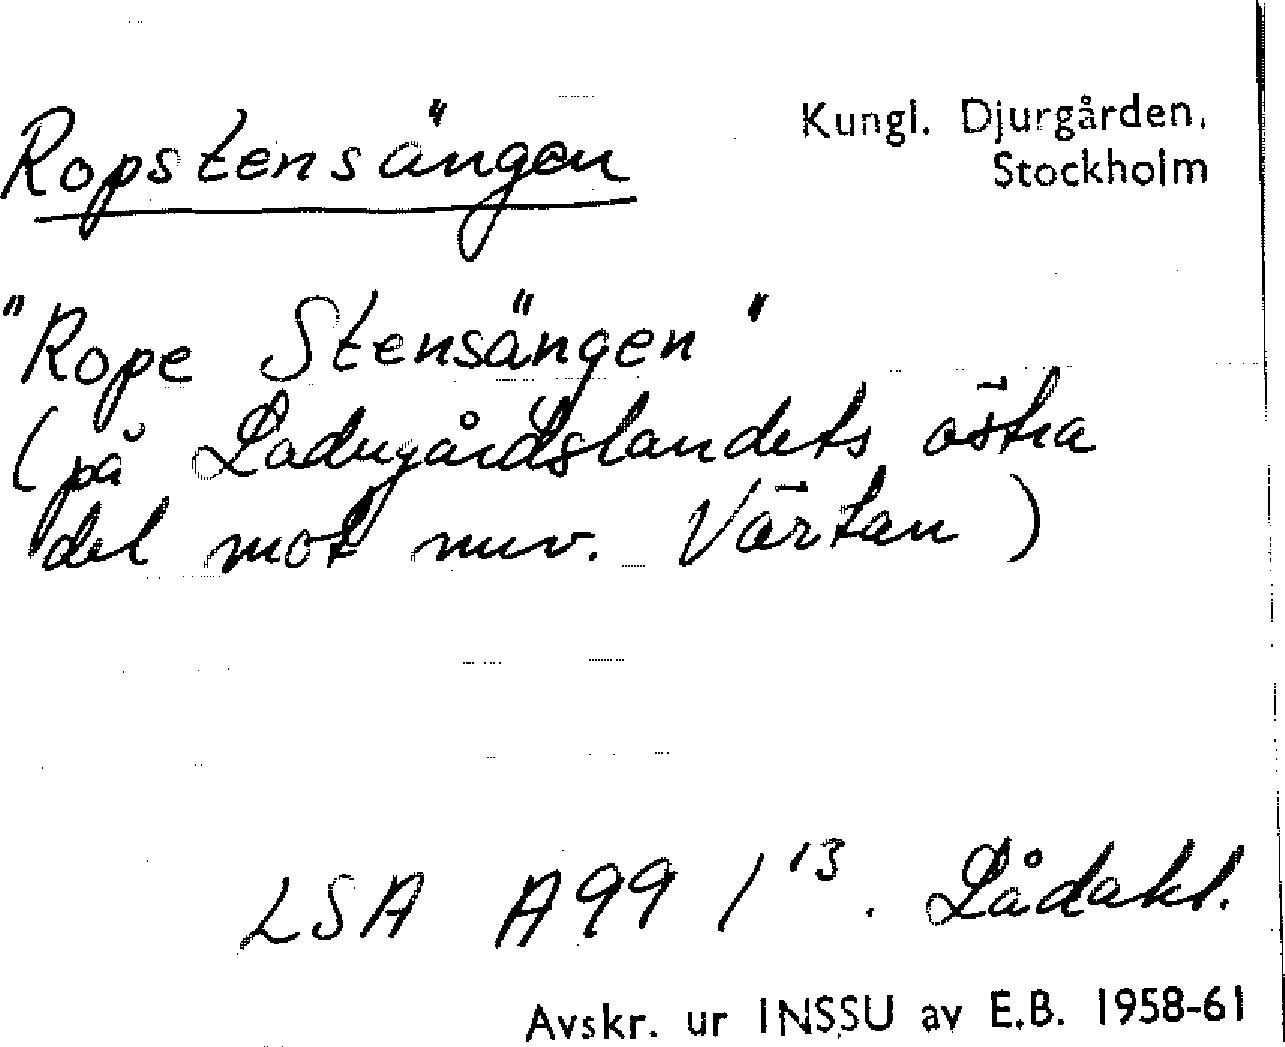 Ropstensängen
Kungl. Djurgården,
Stockholm
"Rope Stensängen"
(på Ladugårdslandets östra
del mot nuv. Värtan)
LSA A99 1¹³. Lådakt.
Avskr. ur INSSU av E.B. 1958-61